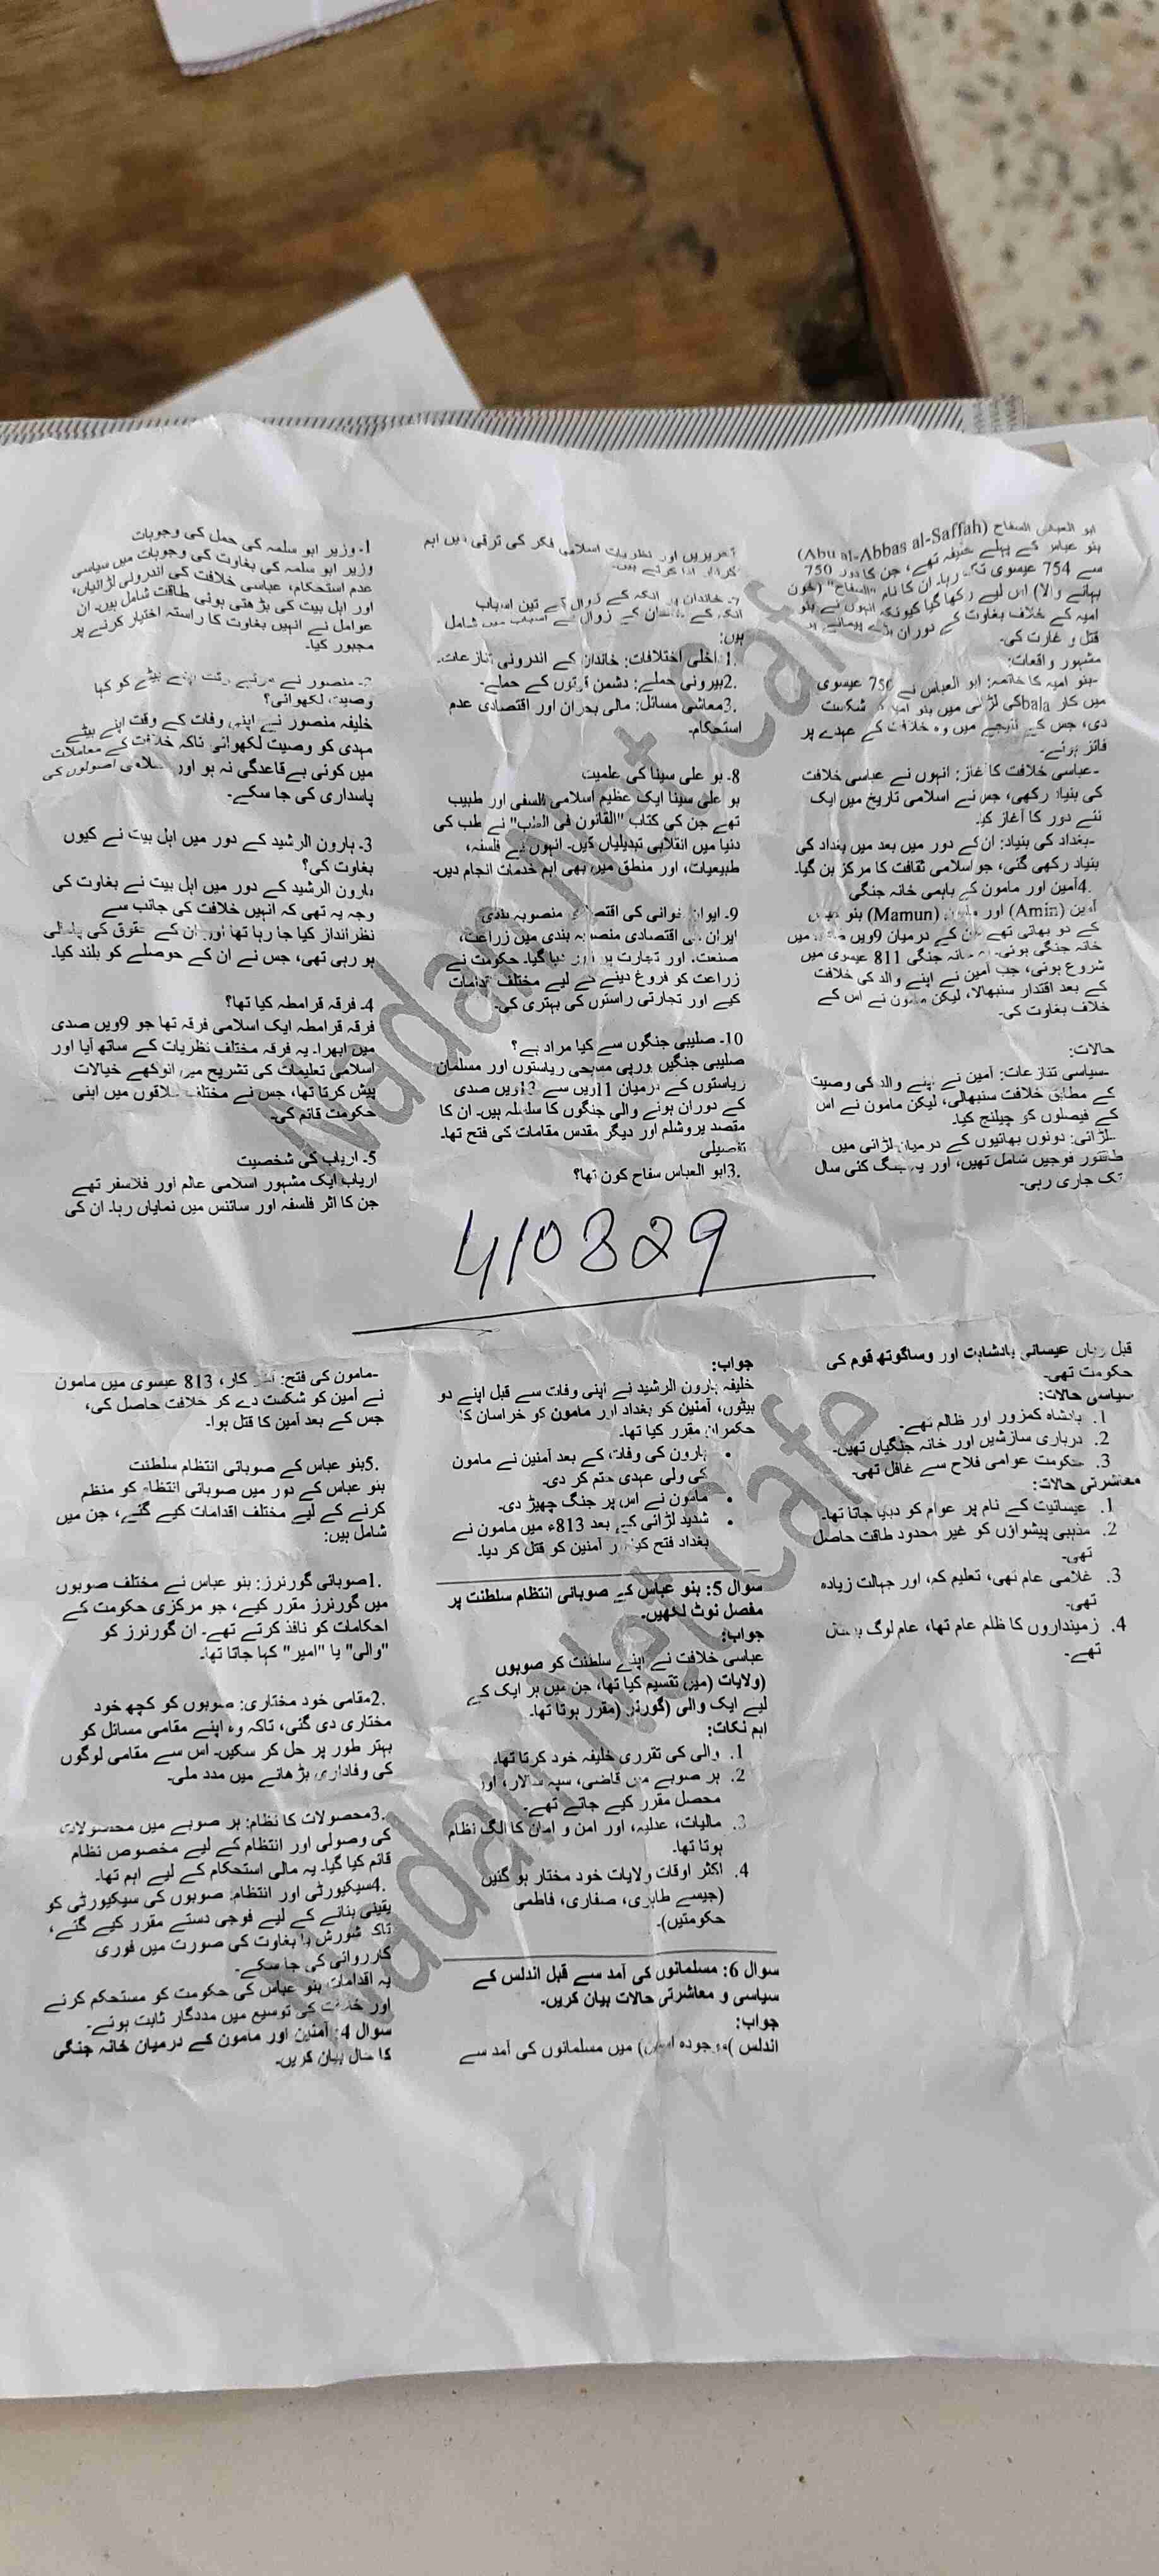 1۔ وزیر ابو سلمہ کی حمل کی وجوہات
وزیر ابو سلمہ کی بغاوت کی وجوہات میں سیاسی
عدم استحکام، عباسی خلافت کی اندرونی لڑائیاں،
اور اہل بیت کی بڑھتی ہوئی طاقت شامل ہیں۔ ان
عوامل نے انہیں بغاوت کا راستہ اختیار کرنے پر
مجبور کیا۔
2۔ منصور نے مرتے وقت اپنے بیٹے کو کیا
وصیت لکھوائی؟
خلیفہ منصور نے اپنی وفات کے وقت اپنے بیٹے
مہدی کو وصیت لکھوائی تاکہ خلافت کے معاملات
میں کوئی بے قاعدگی نہ ہو اور اسلامی اصولوں کی
پاسداری کی جا سکے۔
3۔ ہارون الرشید کے دور میں اہل بیت نے کیوں
بغاوت کی؟
ہارون الرشید کے دور میں اہل بیت نے بغاوت کی
وجہ یہ تھی کہ انہیں خلافت کی جانب سے
نظرانداز کیا جا رہا تھا اور ان کے حقوق کی پامالی
ہو رہی تھی، جس نے ان کے حوصلے کو بلند کیا۔
4۔ فرقہ قرامطہ کیا تھا؟
فرقہ قرامطہ ایک اسلامی فرقہ تھا جو 9ویں صدی
میں ابھرا۔ یہ فرقہ مختلف نظریات کے ساتھ آیا اور
اسلامی تعلیمات کی تشریح میں انوکھے خیالات
پیش کرتا تھا، جس نے مختلف علاقوں میں اپنی
حکومت قائم کی۔
5۔ ارباب کی شخصیت
ارباب ایک مشہور اسلامی عالم اور فلاسفر تھے
جن کا اثر فلسفہ اور سائنس میں نمایاں رہا۔ ان کی
تحریریں اور نظریات اسلامی فکر کی ترقی میں اہم
کردار ادا کرتے ہیں۔
7۔ خاندان کے زوال کے تین اسباب
کے خاندان کے زوال کے اسباب میں شامل
ہیں:
1.داخلی اختلافات: خاندان کے اندرونی تنازعات۔
2.بیرونی حملے: دشمن قوتوں کے حملے۔
3.معاشی مسائل: مالی بحران اور اقتصادی عدم
استحکام۔
8۔ بو علی سینا کی علمیت
بو علی سینا ایک عظیم اسلامی فلسفی اور طبیب
تھے جن کی کتاب "القانون فی الطب" نے طب کی
دنیا میں انقلابی تبدیلیاں کیں۔ انہوں نے فلسفہ،
طبیعیات، اور منطق میں بھی اہم خدمات انجام دیں۔
9۔ ایوان خوانی کی اقتصادی منصوبہ بندی
ایران کی اقتصادی منصوبہ بندی میں زراعت،
صنعت، اور تجارت پر زور دیا گیا۔ حکومت نے
زراعت کو فروغ دینے کے لیے مختلف اقدامات
کیے اور تجارتی راستوں کی بہتری کی۔
10۔ صلیبی جنگوں سے کیا مراد ہے؟
صلیبی جنگیں یورپی مسیحی ریاستوں اور مسلمان
ریاستوں کے درمیان 11ویں سے 13ویں صدی
کے دوران ہونے والی جنگوں کا سلسلہ ہیں۔ ان کا
مقصد یروشلم اور دیگر مقدس مقامات کی فتح تھا۔
تفصیلی
3.ابو العباس سفاح کون تھا؟
ابو العباس السفاح (Abu al-Abbas al-Saffah)
بنو عباس کے پہلے خلیفہ تھے، جن کا دور 750
سے 754 عیسوی تک رہا۔ ان کا نام "السفاح" (خون
بہانے والا) اس لیے رکھا گیا کیونکہ انہوں نے بنو
امیہ کے خلاف بغاوت کے دوران بڑے پیمانے پر
قتل و غارت کی۔
مشہور واقعات:
-بنو امیہ کا خاتمہ: ابو العباس نے 750 عیسوی
میں کار balaکی لڑائی میں بنو امیہ کو شکست
دی، جس کے نتیجے میں وہ خلافت کے عہدے پر
فائز ہوئے۔
-عباسی خلافت کا آغاز: انہوں نے عباسی خلافت
کی بنیاد رکھی، جس نے اسلامی تاریخ میں ایک
نئے دور کا آغاز کیا۔
-بغداد کی بنیاد: ان کے دور میں بعد میں بغداد کی
بنیاد رکھی گئی، جو اسلامی ثقافت کا مرکز بن گیا۔
4.آمین اور مامون کے باہمی خانہ جنگی
آمین (Amin) اور مامون (Mamun) بنو عباس
کے دو بھائی تھے جن کے درمیان 9ویں صدی میں
خانہ جنگی ہوئی۔ یہ خانہ جنگی 811 عیسوی میں
شروع ہوئی، جب آمین نے اپنے والد کی خلافت
کے بعد اقتدار سنبھالا، لیکن مامون نے اس کے
خلاف بغاوت کی۔
حالات:
-سیاسی تنازعات: آمین نے اپنے والد کی وصیت
کے مطابق خلافت سنبھالی، لیکن مامون نے اس
کے فیصلوں کو چیلنج کیا۔
-لڑائی: دونوں بھائیوں کے درمیان لڑائی میں
طاقتور فوجیں شامل تھیں، اور یہ جنگ کئی سال
تک جاری رہی۔
410829
-مامون کی فتح: آخر کار، 813 عیسوی میں مامون
نے آمین کو شکست دے کر خلافت حاصل کی،
جس کے بعد آمین کا قتل ہوا۔
5.بنو عباس کے صوبائی انتظام سلطنت
بنو عباس کے دور میں صوبائی انتظام کو منظم
کرنے کے لیے مختلف اقدامات کیے گئے، جن میں
شامل ہیں:
1.صوبائی گورنرز: بنو عباس نے مختلف صوبوں
میں گورنرز مقرر کیے، جو مرکزی حکومت کے
احکامات کو نافذ کرتے تھے۔ ان گورنرز کو
"والی" یا "امیر" کہا جاتا تھا۔
2.مقامی خود مختاری: صوبوں کو کچھ خود
مختاری دی گئی، تاکہ وہ اپنے مقامی مسائل کو
بہتر طور پر حل کر سکیں۔ اس سے مقامی لوگوں
کی وفاداری بڑھانے میں مدد ملی۔
3.محصولات کا نظام: ہر صوبے میں محصولات
کی وصولی اور انتظام کے لیے مخصوص نظام
قائم کیا گیا۔ یہ مالی استحکام کے لیے اہم تھا۔
4.سیکیورٹی اور انتظام: صوبوں کی سیکیورٹی کو
یقینی بنانے کے لیے فوجی دستے مقرر کیے گئے،
تاکہ شورش یا بغاوت کی صورت میں فوری
کارروائی کی جا سکے۔
یہ اقدامات بنو عباس کی حکومت کو مستحکم کرنے
اور خلافت کی توسیع میں مددگار ثابت ہوئے۔
سوال 4: آمنین اور مامون کے درمیان خانہ جنگی
کا حال بیان کریں۔
جواب:
خلیفہ ہارون الرشید نے اپنی وفات سے قبل اپنے دو
بیٹوں، آمنین کو بغداد اور مامون کو خراسان کا
حکمران مقرر کیا تھا۔
• ہارون کی وفات کے بعد آمنین نے مامون
کی ولی عہدی ختم کر دی۔
• مامون نے اس پر جنگ چھیڑ دی۔
• شدید لڑائی کے بعد 813ء میں مامون نے
بغداد فتح کیا اور آمنین کو قتل کر دیا۔
سوال 5: بنو عباس کے صوبائی انتظام سلطنت پر
مفصل نوٹ لکھیں۔
جواب:
عباسی خلافت نے اپنے سلطنت کو صوبوں
(ولایات (میں تقسیم کیا تھا، جن میں ہر ایک کے
لیے ایک والی (گورنر (مقرر ہوتا تھا۔
اہم نکات:
1. والی کی تقرری خلیفہ خود کرتا تھا۔
2. ہر صوبے میں قاضی، سپہ سالار، اور
محصل مقرر کیے جاتے تھے۔
3. مالیات، عدلیہ، اور امن و امان کا الگ نظام
ہوتا تھا۔
4. اکثر اوقات ولایات خود مختار ہو گئیں
(جیسے طاہری، صفاری، فاطمی
حکومتیں)۔
سوال 6: مسلمانوں کی آمد سے قبل اندلس کے
سیاسی و معاشرتی حالات بیان کریں۔
جواب:
اندلس )موجودہ اسپین) میں مسلمانوں کی آمد سے
قبل یہاں عیسائی بادشاہت اور وساگوتھ قوم کی
حکومت تھی۔
سیاسی حالات:
1. بادشاہ کمزور اور ظالم تھے۔
2. درباری سازشیں اور خانہ جنگیاں تھیں۔
3. حکومت عوامی فلاح سے غافل تھی۔
معاشرتی حالات:
1. عیسائیت کے نام پر عوام کو دبایا جاتا تھا۔
2. مذہبی پیشواؤں کو غیر محدود طاقت حاصل
تھی۔
3. غلامی عام تھی، تعلیم کم، اور جہالت زیادہ
تھی۔
4. زمینداروں کا ظلم عام تھا، عام لوگ بدحال
تھے۔
Nadam Net Cafe
Nadam Net Cafe